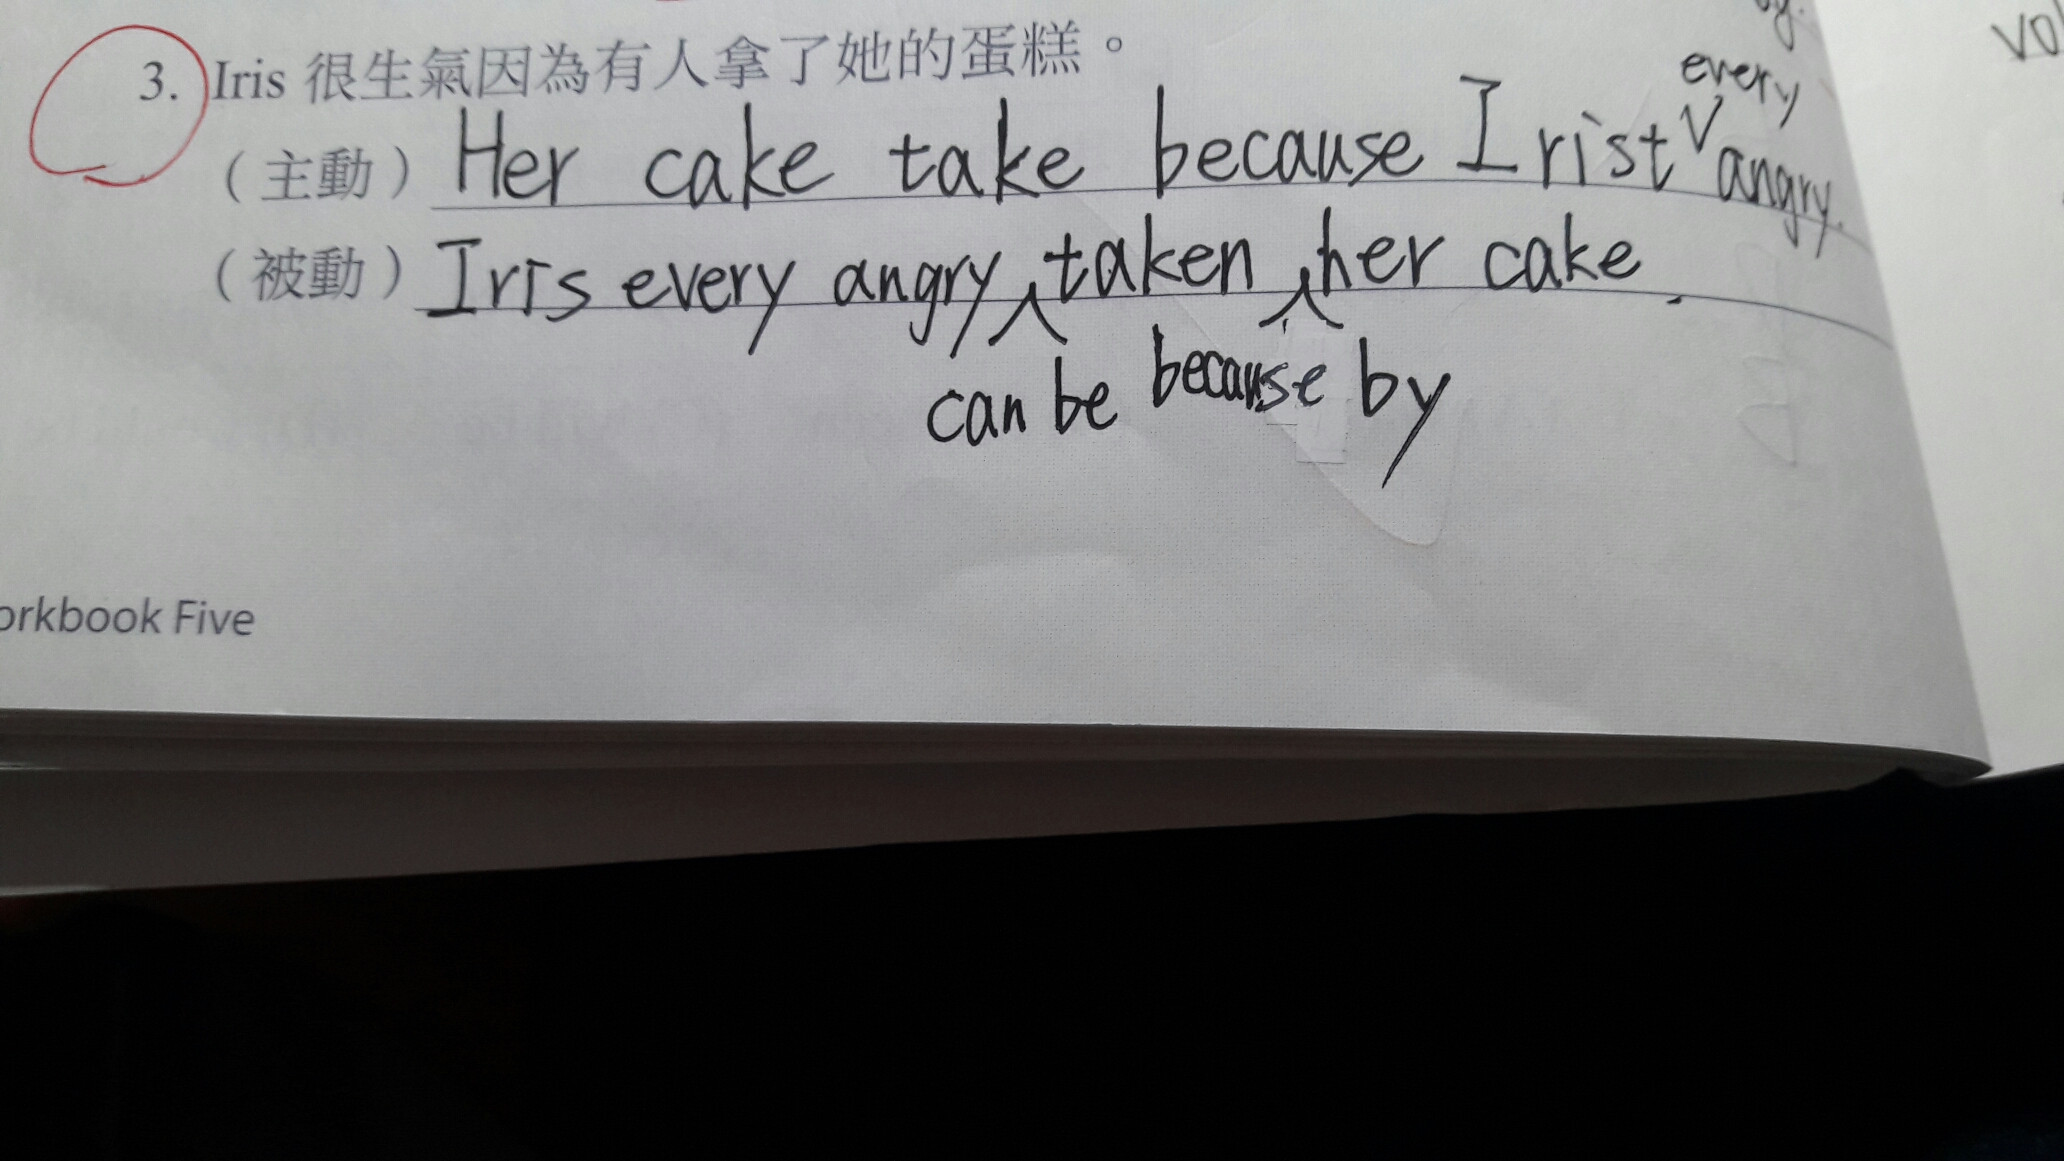 3. Iris 很生氣因為有人拿了她的蛋糕。
every
（主動）Her cake take because Irist ∨ angry.
（被動）Iris every angry taken her cake.
can be because by
orkbook Five